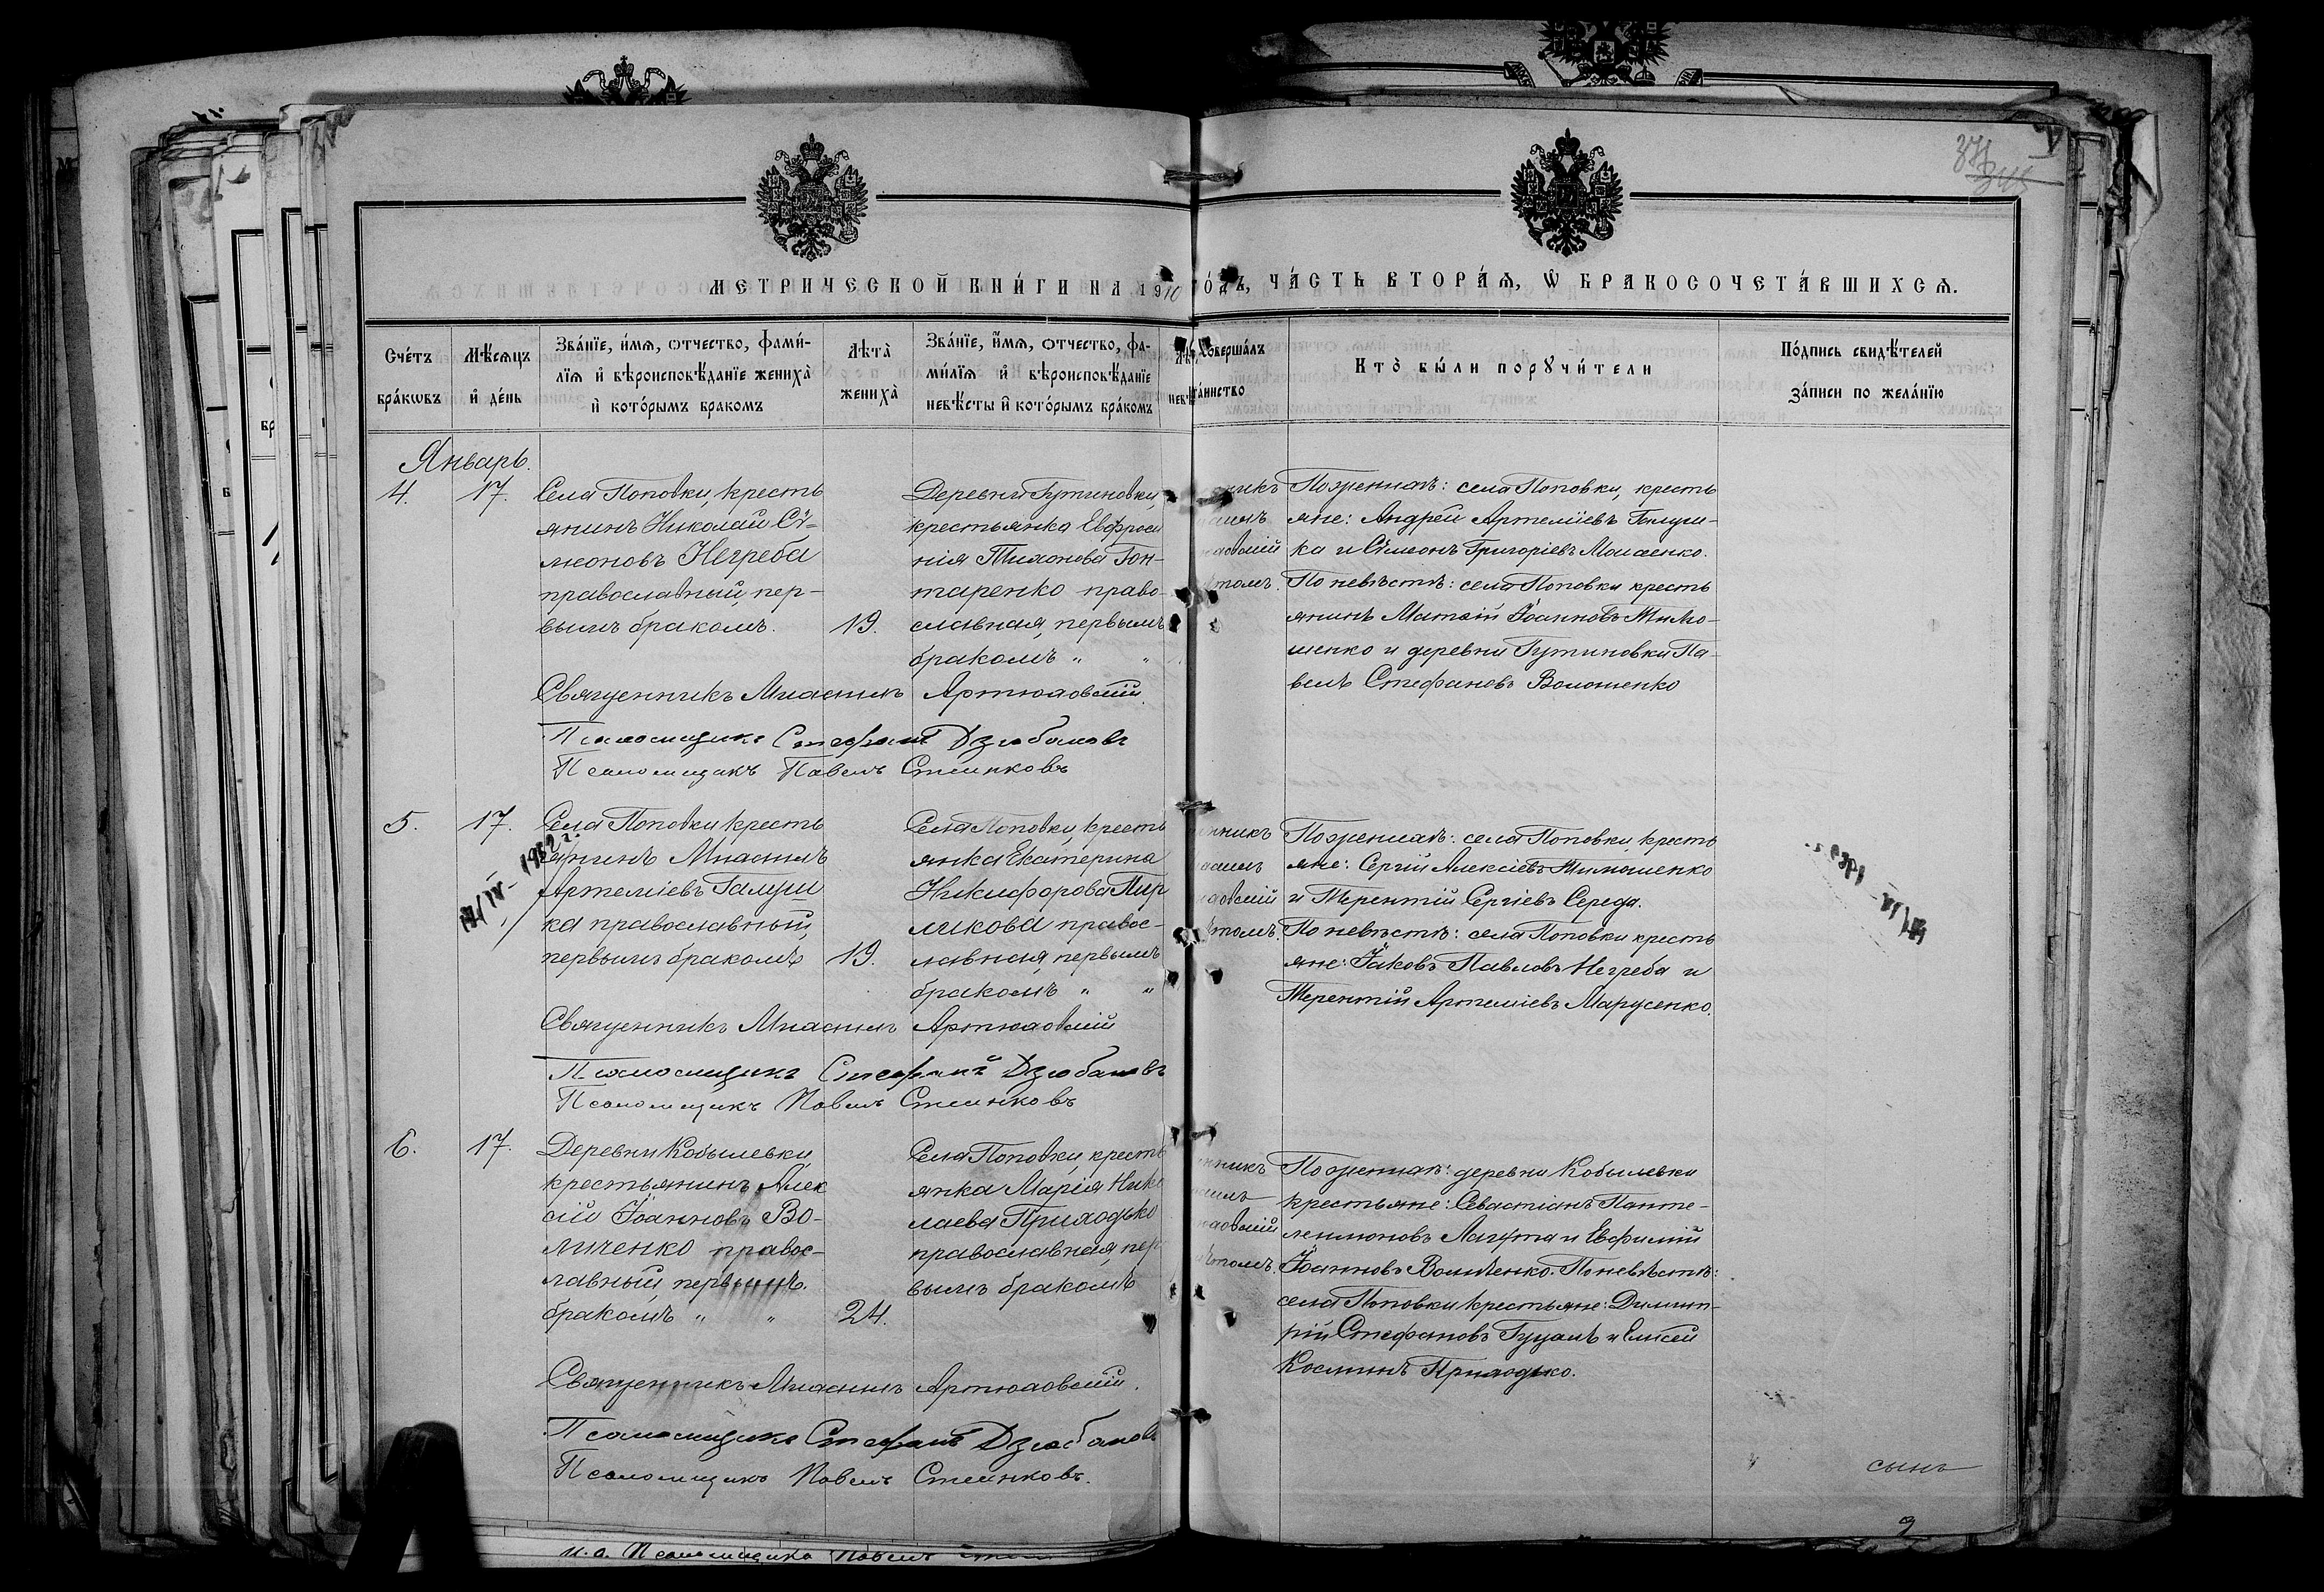 МЕТРИЧЕСКОЙ КНИГИ НА 1910 ГОДЪ, ЧАСТЬ ВТОРАЯ, Ѡ БРАКОСОЧЕТАВШИХСЯ.
Счетъ браковъ
Мѣсяцъ и день
Званіе, имя, отчество, фами-
лія и вѣроисповѣданіе жениха
и которымъ бракомъ
Лѣта жениха
Званіе, имя, отчество, фа-
милія и вѣроисповѣданіе
невѣсты и которымъ бракомъ
совершалъ
таинство
Кто были поручители
Подпись свидѣтелей
записи по желанію
Январь.
4. 17.
Села Поповки, кресть
янинъ Николай Сѵ-
меоновъ Негреба
православный, пер-
вымъ бракомъ. 19.
Деревни Гутиновки,
крестьянка Евфроси
нія Тихонова Гон-
таренко право-
славная, первымъ
бракомъ " "
По женихѣ: села Поповки, кресть
яне: Андрей Артеміевъ Галуш-
ка и Сѵмеонъ Григоріевъ
По невѣстѣ: села Поповки кресть
янинъ Матѳій Іоанновъ Тимо-
шенко и деревни Гутиновки Па-
велъ Стефановъ Волошенко
Священникъ Артюховскій
Псаломщикъ Стефанъ Дзюбановъ
Псаломщикъ Павелъ
5. 17.
Села Поповки кресть
янинъ
Артеміевъ Галуш
ка православный
первымъ бракомъ 19.
Села Поповки, кресть
янка Екатерина
Никифорова
православная, первымъ
бракомъ " "
По женихѣ: села Поповки, кресть
яне: Сергій Алексіевъ Тимошенко
и Терентій Сергіевъ Середа.
По невѣстѣ: села Поповки кресть
яне: Іаковъ Павловъ Негреба и
Терентій Артеміевъ Марусенко.
Священникъ Артюховскій
Псаломщикъ Стефанъ Дзюбановъ
Псаломщикъ Павелъ
6. 17.
Деревни Кобылевки,
крестьянинъ Алек
сій Іоанновъ Во-
личенко правос-
лавный, первымъ
бракомъ " " 24.
Села Поповки, кресть
янка Марія Нико
лаева Приходько
православная, пер
вымъ бракомъ
По женихѣ: деревни Кобылевки
крестьяне: Севастіанъ Панте-
леимоновъ Лагута и Евфимій
Іоанновъ Воличенко. По невѣстѣ:
села Поповки крестьяне: Димит-
рій Стефановъ и Елисей
Косминъ Приходько.
Священникъ Артюховскій.
Псаломщикъ Стефанъ Дзюбановъ
Псаломщикъ Павелъ
сынъ